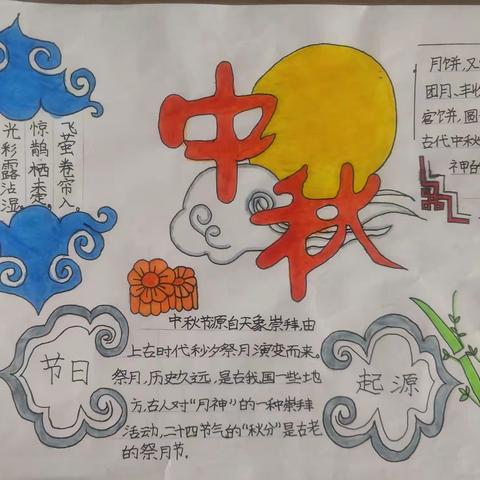 中秋
飞萤卷帘入。
惊鹊栖未定,
光彩露沾湿,
月饼,又
团月、丰收
客饼,圆
古代中秋
神的
节日
中秋节源自天象崇拜,由
上古时代秋夕祭月演变而来。
祭月,历史久远,是在我国一些地
方,古人对“月神”的一种崇拜
活动,二十四节气的“秋分”是古老
的祭月节.
起源